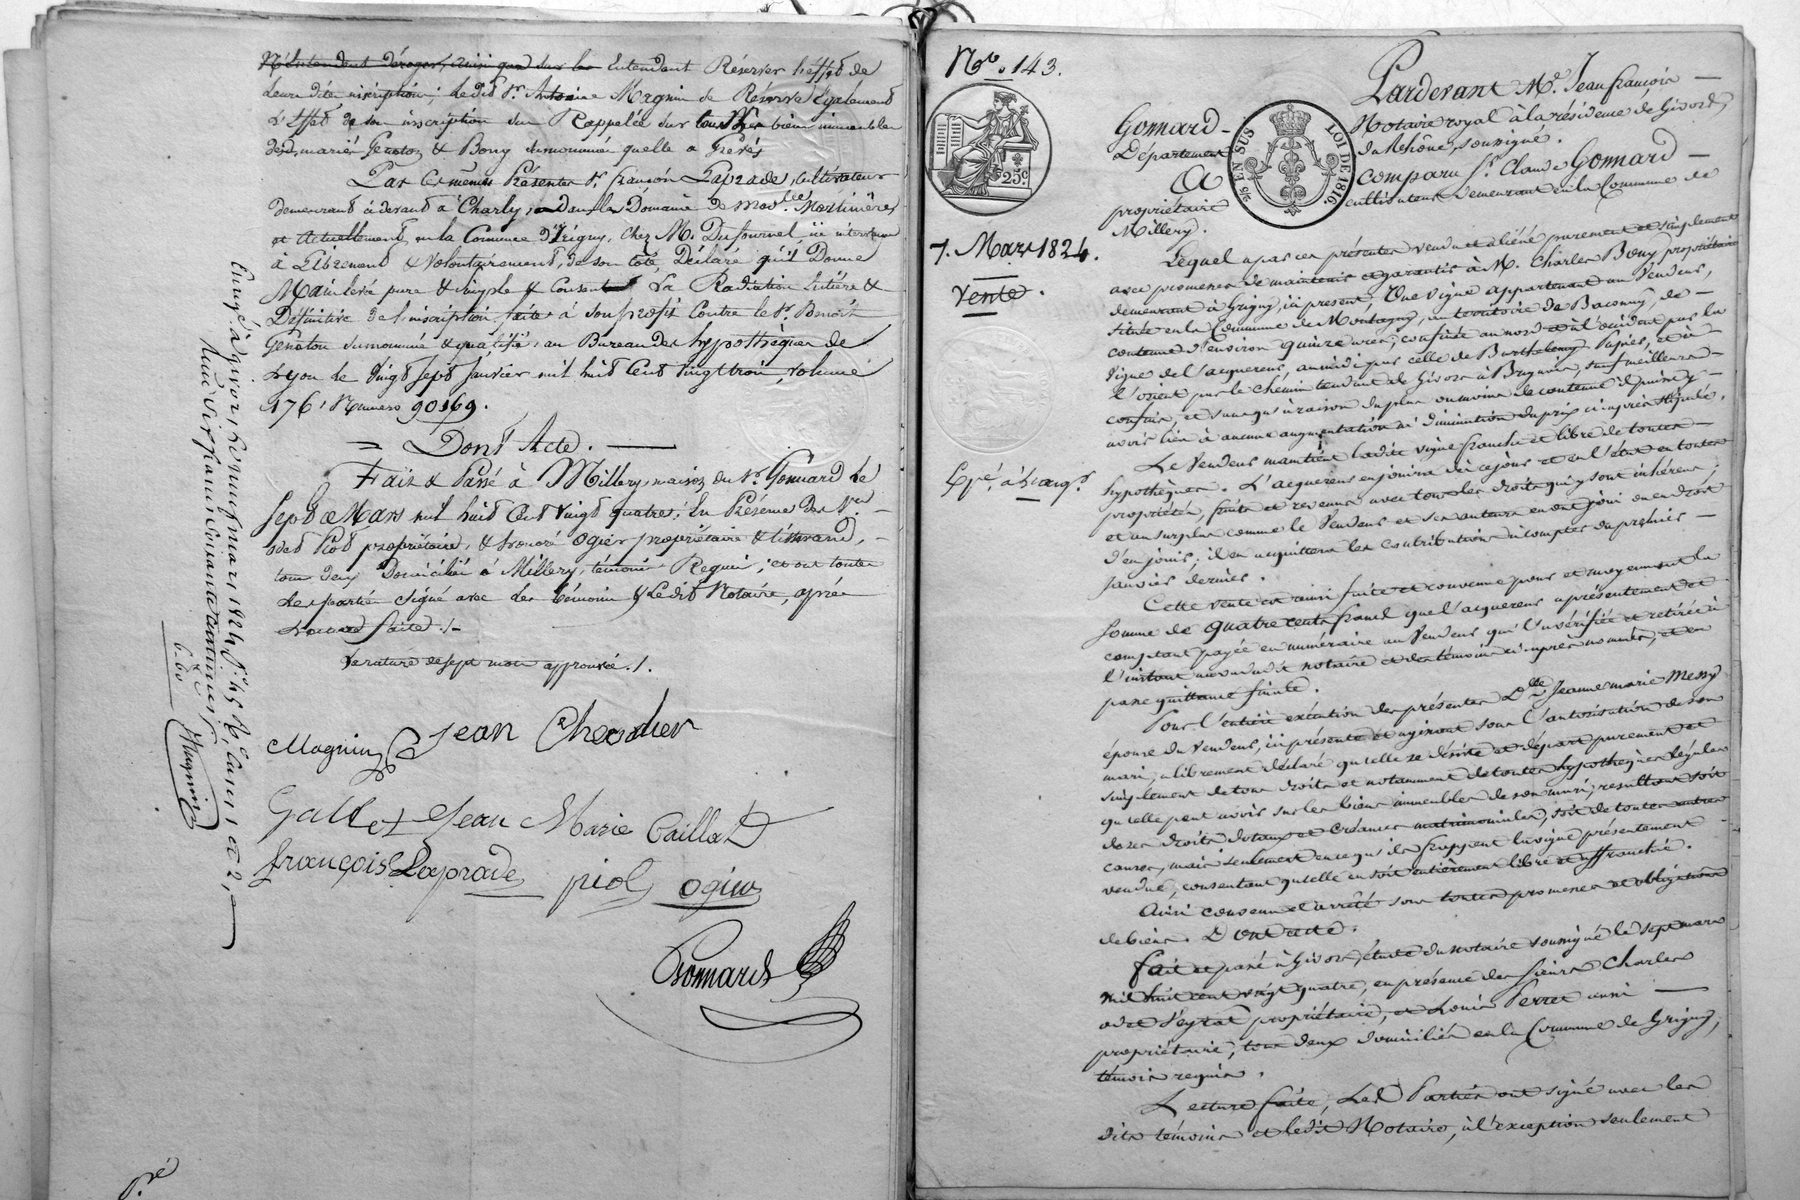 N'Entendent déroger, ainsi que sur les Entendent Réserver l'effet de
leur dite inscription; ledit Sr. Antoine Magnin se Réserve également
L'Effet de son inscription sur Rappelée sur tous les biens immeubles
desd. mariés Genoton & Bony surnommée quelle a Grevés
Par ces mêmes Présentes Sr. françois Laprade, Cultivateur
demeurant ci devant à Charly, dans le Domaine de Mad.lle Martinière
et Actuellement en la Commune d'Irigny, Chez M. Dufournel ici intervenu
à Librement & volontairement, de son coté, Déclaré qu'il Donne
Mainlevée pure & simple & Consent La Radiation Entière &
Définitive de l'inscription faite à son profit Contre le Sr. Benoit
Genoton surnommé & qualifié, au Bureau des hypothèques de
Lyon le Vingt Sept Janvier mil huit Cent Vingt trois, volume
176, Numéro 90169.
= Dont Acte.
Fait & Passé à Millery, maison du Sr. Gonnard Le
Sept Mars mil huit Cent Vingt quatre, En Présence des Srs.
odet Piot propriétaire, & honoré Ogier propriétaire & tisserand,
tous deux Domiciliés à Millery, témoins Requis; et ont toutes
Les parties signé avec les témoins & Ledit Notaire, après
Lecture faite./.
Rature de sept mots approuvée./.
Magnin Jean Chevalier
Gallet Jean Marie Caillat
françois Laprade piot ogier
Gonnard
Enregé. à Givors, le neuf mars 1824 f.° 45 R.° Cases 1 et 2,
Reçu six francs soixante centimes
6.60
Magnin
No. 143.
25c.
7. Mars 1824.
Vente.
Expé. à l'acqr.
Pardevant Me. Jean francois
Gonnard Notaire royal à la résidence de Givors,
Département du Rhône, soussigné.
5/6 EN SUS LOI DE 1816.
A comparu Sr. Claude Gonnard
propriétaire cultivateur demeurant en la Commune de
Millery.
Lequel a par ces présentes vendu et aliéné purement et simplement
avec promesse de maintenir et garantir à M. Charles Bony propriétaire
demeurant à Grigny, ici présent, Une vigne appartenant au Vendeur,
située en la Commune de Montagny, au territoire de Baconny, de
contenue d'environ quinze ares, confinée au nord et à l'occident par la
vigne de l'acquéreur, au midi par celle de Barthelemy Pagnés, et à
l'orient par le chemin tendant de Givors à Brignais, sauf meilleurs
confins, et sans qu'à raison du plus ou moins de contenue il puisse y
avoir lieu à aucune augmentation ni diminution du prix ci après stipulé.
Le Vendeur maintient ladite vigne franche et libre de toutes
hypothèques. L'acquéreur en jouira dès ce jour et en l'état en toutes
propriétés, fruits et revenus avec tous les droits qui y sont inhérens;
et au surplus comme le Vendeur et ses auteurs en ont joui ou eu droit
d'en jouir; il en acquittera les contributions à compter du premier
Janvier dernier.
Cette vente est ainsi faite et convenue pour et moyennant la
somme de quatre cents francs que l'acquéreur a présentement et
comptant payée en numéraire au Vendeur qui l'a vérifiée et retirée à
l'instant au vu dudit notaire et des témoins ci après nommés, et en
passe quittance finale.
Pour l'entière exécution des présentes Dlle Jeanne marie Messy
épouse du Vendeur, ici présente et agissant sous l'autorisation de son
mari, a librement déclaré qu'elle se désiste et départ purement et
simplement de tous droits et notamment de toutes hypothèques légales
qu'elle peut avoir sur les biens immeubles de son mari, resultant soit
de ses droits dotaux et Créances matrimoniales, soit de toutes autres
causes, mais seulement en ce qu'ils frappent la vigne présentement
vendue, consentant qu'elle en soit entièrement libre et affranchie.
Ainsi convenu et arrêté sous toutes promesses et obligations
de biens. Dont acte.
fait et passé à Givors, étude du notaire soussigné le sept mars
mil huit cent vingt quatre, en présence des sieurs Charles
odet Peytat propriétaire, et Louis Perret aussi
propriétaire, tous deux domiciliés en la Commune de Grigny,
témoins requis.
Lecture faite, Les Parties ont signé avec les
dits témoins et ledit Notaire, à l'exception seulement